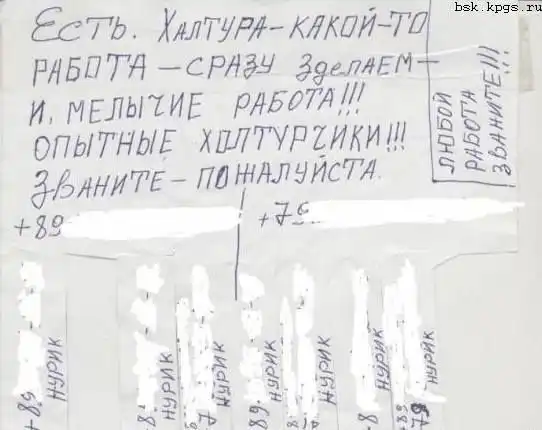 bsk.kpgs.ru
ЕСТЬ. ХАЛТУРА-КАКОЙ-ТО
РАБОТА-СРАЗУ ЗДЕЛАЕМ-
И, МЕЛЫЧИЕ РАБОТА!!!
ОПЫТНЫЕ ХОЛТУРЧИКИ!!!
ЗВАНИТЕ-ПОЖАЛУЙСТА.
ЛЮБОЙ
РАБОТА
ЗВАНИТЕ!!!
+89
+79
+89
НУРИК
НУРИК
НУРИК
НУРИК
НУРИК
НУРИК
НУРИК